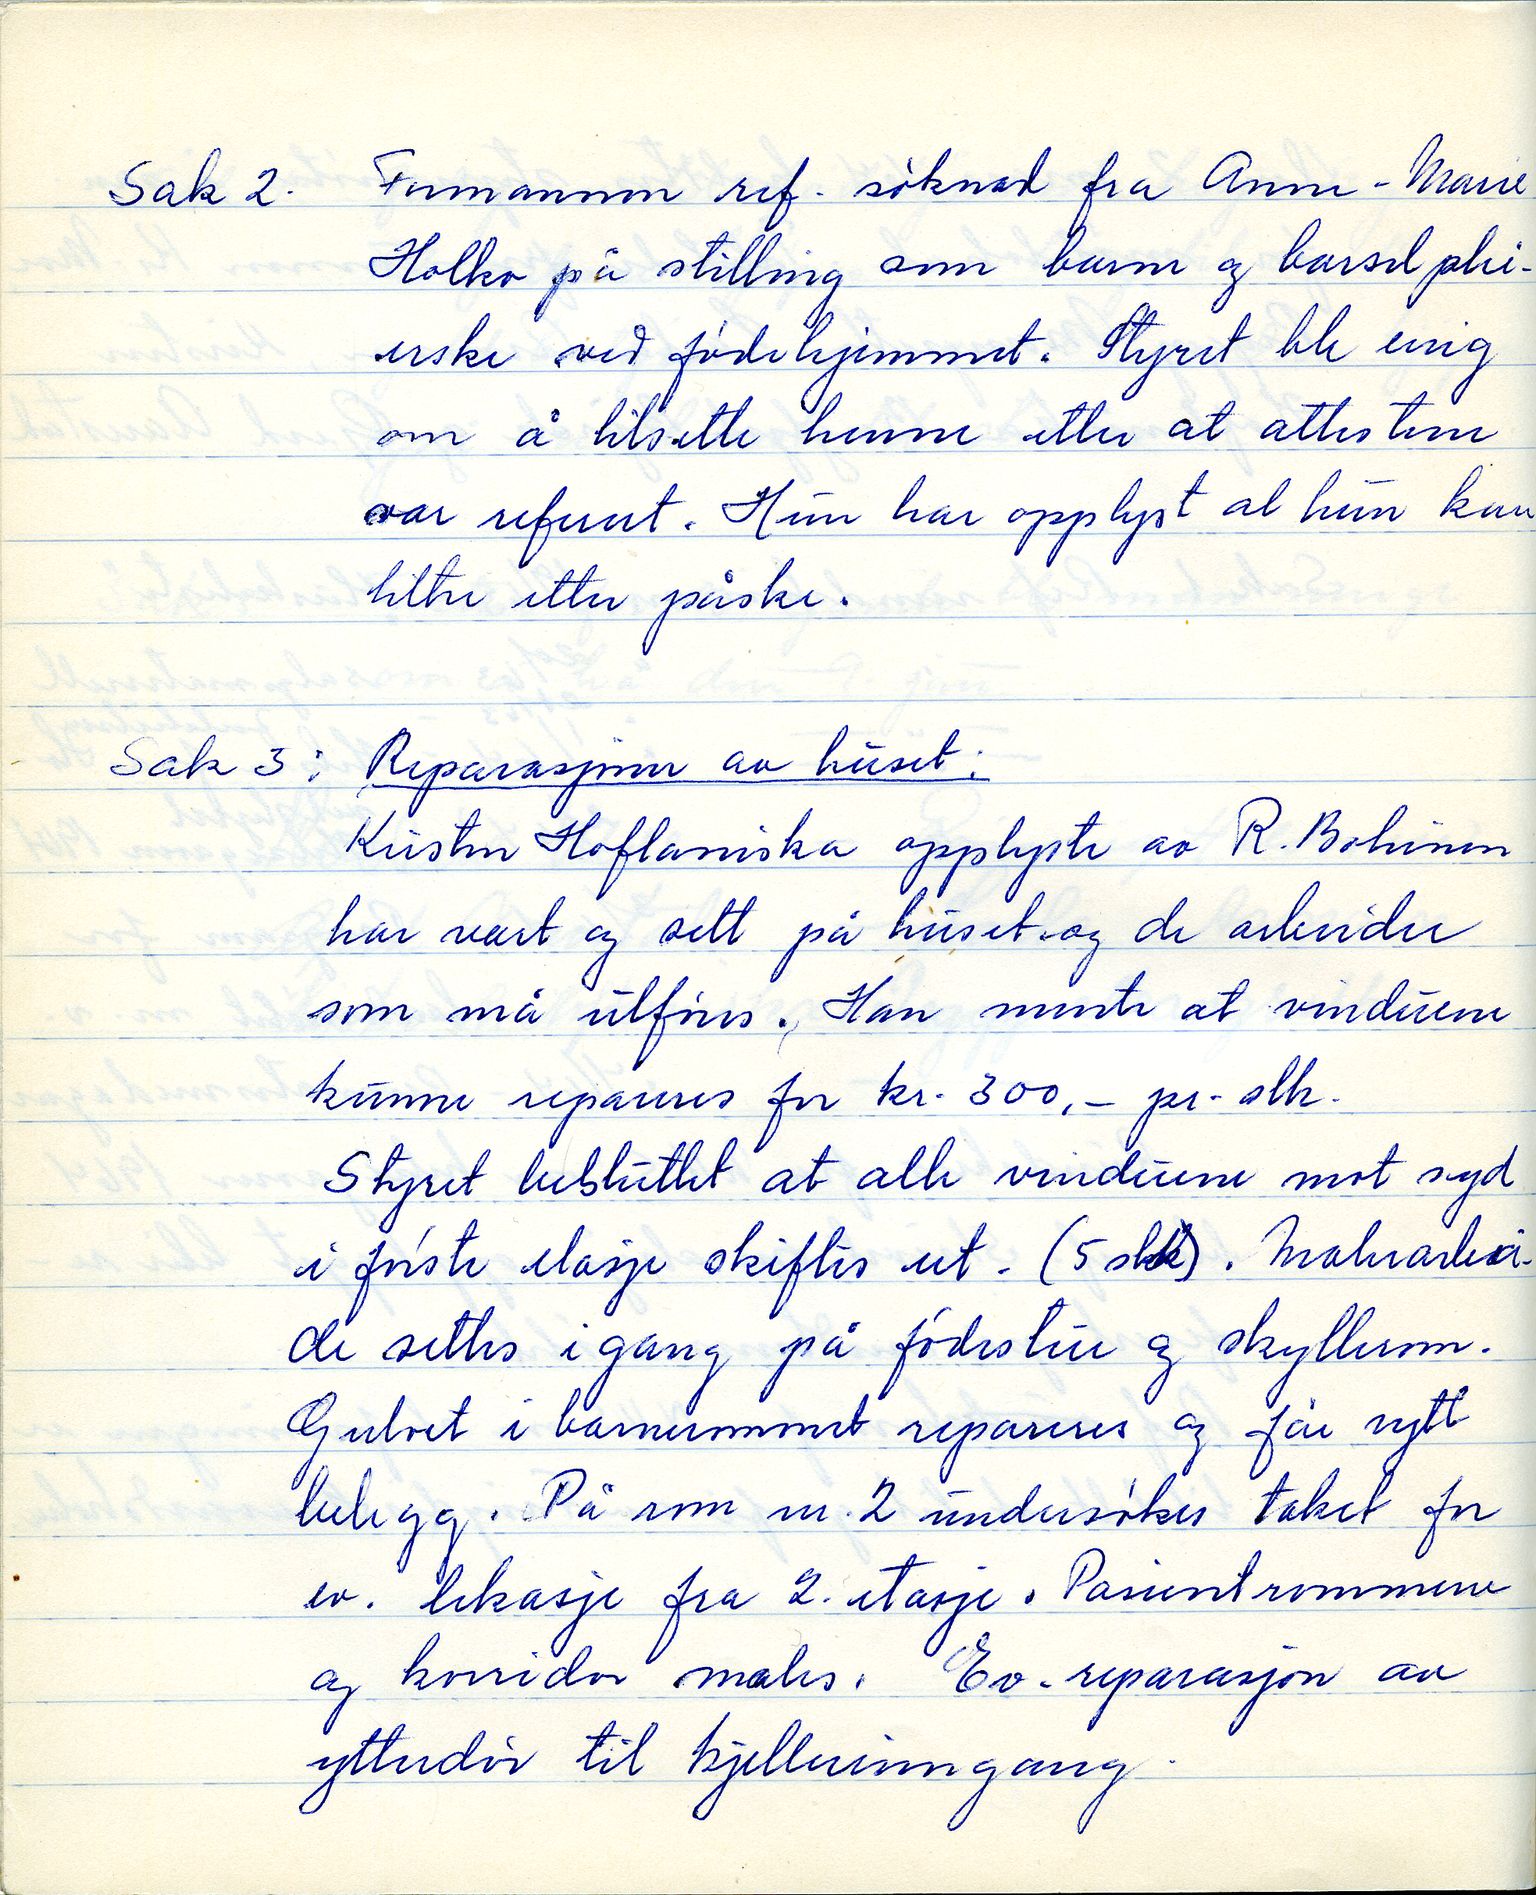 Sak 2. Formannen ref. söknad fra Anne-Marie
Holko på stilling som barne og barselplei-
erske ved födehjemmet. Styret ble enig
om å tilsette henne etter at attestene
var referert. Hun har opplyst at hun kan
tiltre etter påske.
Sak 3: Reparasjoner av huset:
Kirsten Hoflaniska opplyste av R. Bohinen
har vært og sett på huset og de arbeider
som må utföres. Han mente at vinduene
kunne repareres for kr. 300,- pr. stk.
Styret besluttet at alle vinduene mot syd
i förste etasje skiftes ut. (5 stk). Malerarbei-
de settes igang på födestue og skyllerom.
Gulvet i barnerommet repareres og får nytt
belegg. På rom nr. 2 undersökes taket for
ev. lekasje fra 2. etasje. Pasientrommene
og korridor males. Ev. reparasjon av
ytterdör til kjellerinngang.